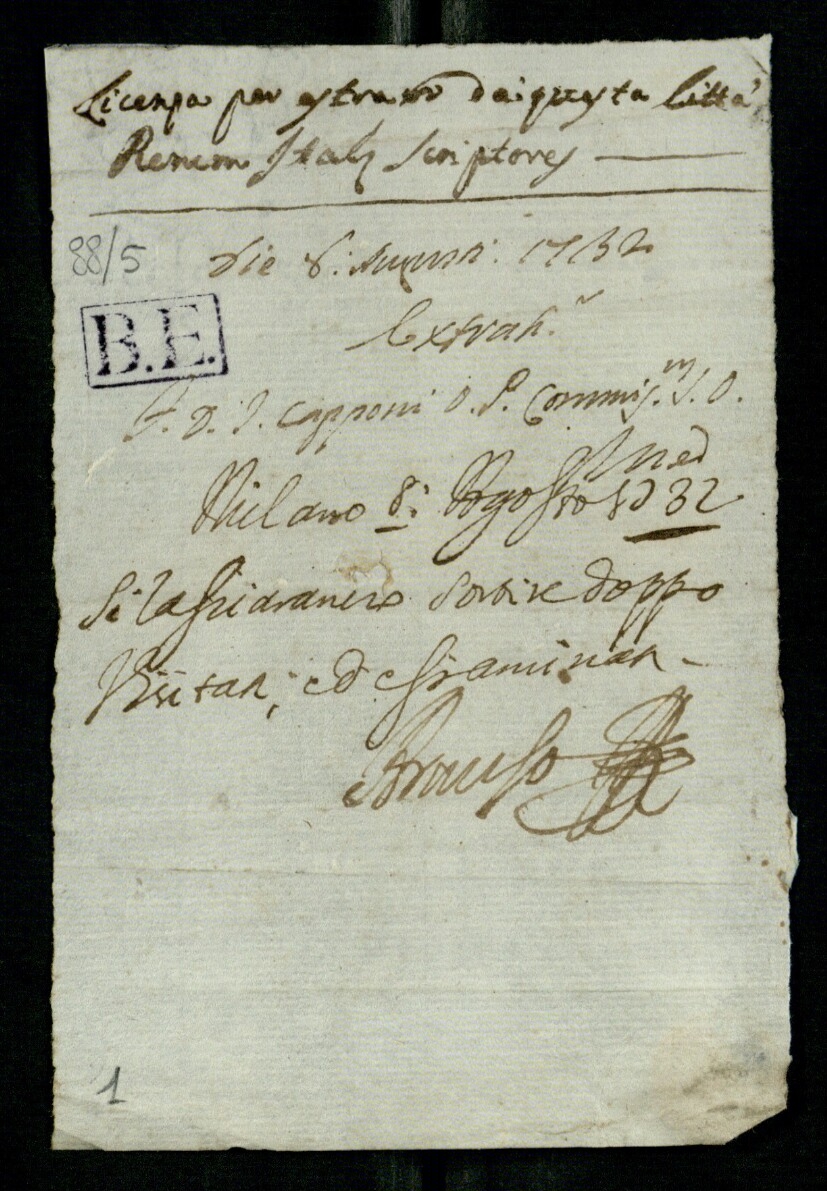 Licenza per estraer da questa Città
Rerum Italỹ Scriptores
88/5
Die 8. Augusti. 1732
B.E.
Extrah.r
F. D. J. Capponi O. P. Commis.m S. O.
Med
Milano 8: Agosto 1732
Si lasciaranno sortire doppo
Visitati, ed esaminati
1